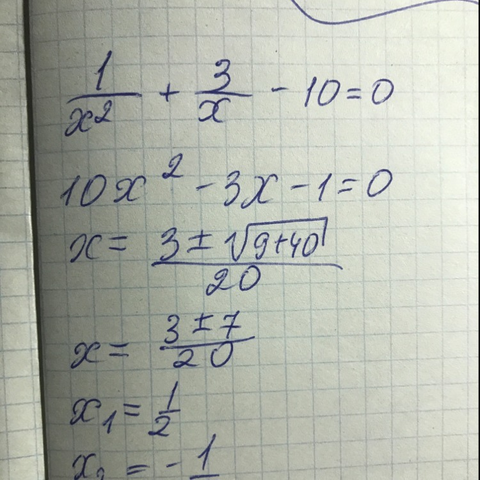 1/x² + 3/x - 10 = 0
10x² - 3x - 1 = 0
x = (3 ± √(9+40))/20
x = (3 ± 7)/20
x₁ = 1/2
x₂ = - 1/